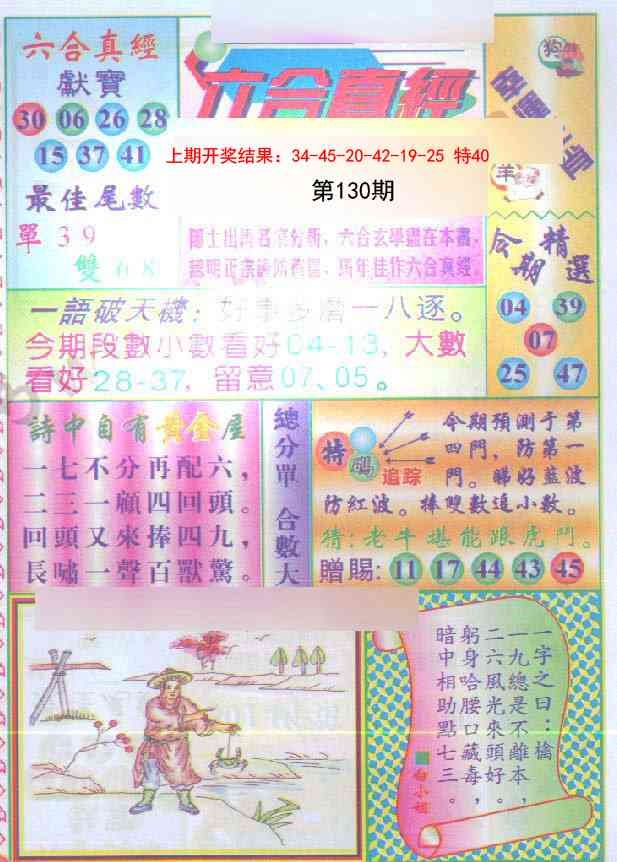 六合真經
獻寶
30 06 26 28
15 37 41
最佳尾數
單 3 9
雙 6 8
六合真經
上期开奖结果: 34-45-20-42-19-25 特40
第130期
狗
羊
今期精選
04 39
07
25 47
一語破天機: 好事多磨一八逐。
今期段數小數看好04-13, 大數
看好28-37, 留意07、05。
詩中自有黃金屋
一七不分再配六,
二三一顧四回頭。
回頭又來捧四九,
長嘯一聲百獸驚。
總分單 合數大
特碼追踪
今期預測于第
四門, 防第一
門。睇好藍波
防紅波。捧雙數追小數。
猜: 老牛堪能跟虎鬥。
贈賜: 11 17 44 43 45
一字之曰: 檎
一九總是不離本,
二六風光來頭好,
躬身哈腰口藏毒,
暗中相助點七三。
白小姐